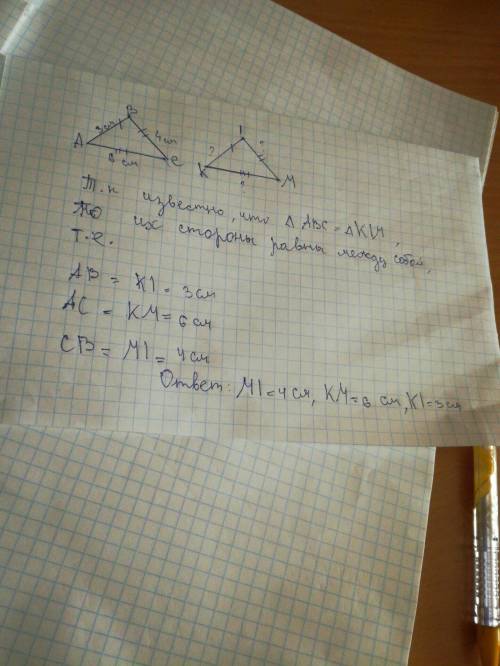 B
1
A
3см
4см
6 см
C
?
?
K
?
M
Т.к известно, что Δ ABC = Δ K1M,
то их стороны равны между собой,
т.е.
AB = K1 = 3см
AC = KM = 6 см
CB = M1 = 4 см
Ответ: M1 = 4 см, KM = 6 см, K1 = 3см